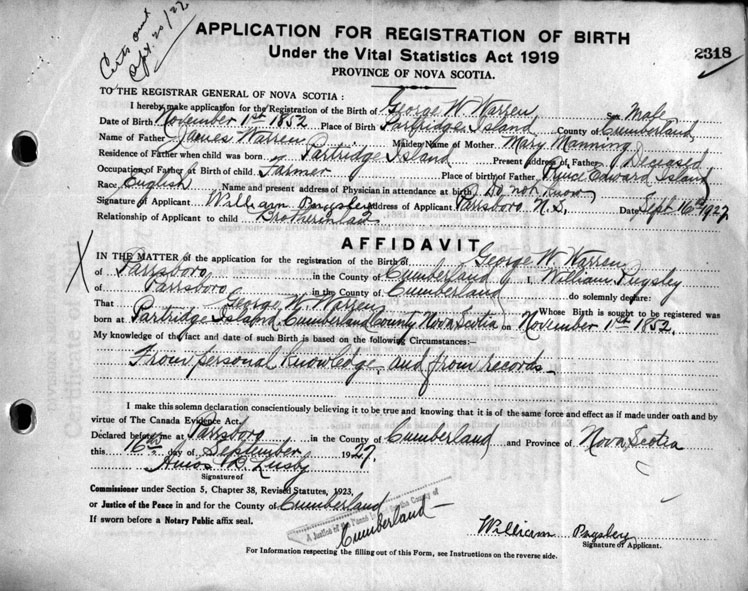 Certs and
Sept. 20/27
APPLICATION FOR REGISTRATION OF BIRTH
2318
Under the Vital Statistics Act 1919
PROVINCE OF NOVA SCOTIA.
TO THE REGISTRAR GENERAL OF NOVA SCOTIA :
I hereby make application for the Registration of the Birth of George W Warren, Sex Male
Date of Birth November 1st 1852 Place of Birth Partridge Island County of Cumberland
Name of Father James Warren Maiden Name of Mother Mary Manning
Residence of Father when child was born Partridge Island Present address of Father Deceased
Occupation of Father at Birth of child Farmer Place of birth of Father Prince Edward Island
Race English Name and present address of Physician in attendance at birth Do not know
Signature of Applicant William Pugsley Address of Applicant Parrsboro N.S. Date Sept 16th 1927.
Relationship of Applicant to child Brother in law
AFFIDAVIT
X
IN THE MATTER of the application for the registration of the Birth of George W. Warren
of Parrsboro in the County of Cumberland I, William Pugsley
of Parrsboro in the County of Cumberland do solemnly declare:
That George W. Warren Whose Birth is sought to be registered was
born at Partridge Island, Cumberland County, Nova Scotia on November 1st 1852.
My knowledge of the fact and date of such Birth is based on the following Circumstances:—
From personal knowledge and from records
I make this solemn declaration conscientiously believing it to be true and knowing that it is of the same force and effect as if made under oath and by
virtue of The Canada Evidence Act.
Declared before me at Parrsboro in the County of Cumberland and Province of Nova Scotia
this 16th day of September 1927.
Amos B. Lusby
Signature of
Commissioner under Section 5, Chapter 38, Revised Statutes, 1923,
or Justice of the Peace in and for the County of Cumberland
If sworn before a Notary Public affix seal.
A Justice of the Peace in and for the County of
Cumberland
William Pugsley
Signature of Applicant.
For Information respecting the filling out of this Form, see Instructions on the reverse side.